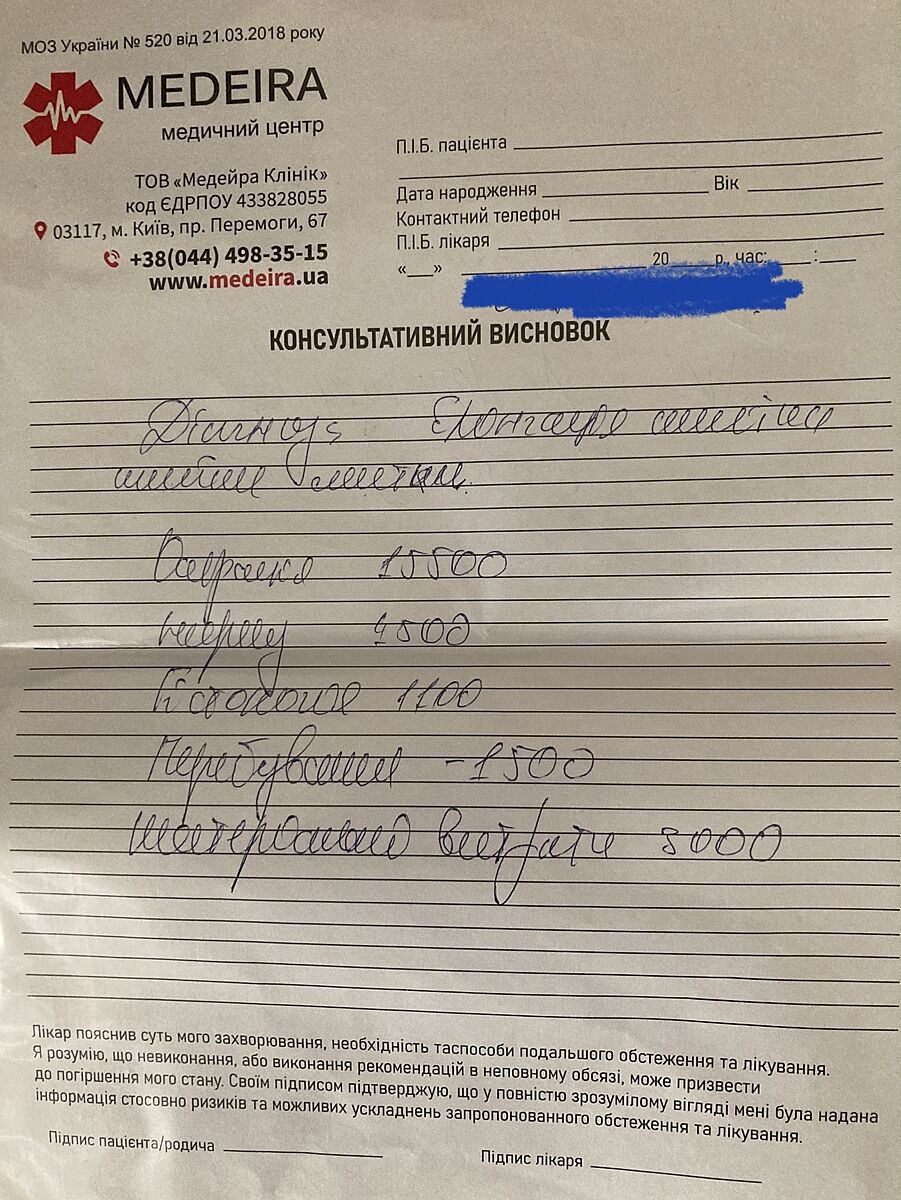 МОЗ України № 520 від 21.03.2018 року
MEDEIRA
медичний центр
ТОВ «Медейра Клінік»
код ЄДРПОУ 433828055
03117, м. Київ, пр. Перемоги, 67
+38(044) 498-35-15
www.medeira.ua
П.І.Б. пацієнта
Дата народження Вік
Контактний телефон
П.І.Б. лікаря
«__» 20 р., час: :
КОНСУЛЬТАТИВНИЙ ВИСНОВОК
Діагноз: Елонгація
шийки матки.
Операція 15500
1100
Перебування -1500
витрати
Лікар пояснив суть мого захворювання, необхідність таспособи подальшого обстеження та лікування.
Я розумію, що невиконання, або виконання рекомендацій в неповному обсязі, може призвести
до погіршення мого стану. Своїм підписом підтверджую, що у повністю зрозумілому вигляді мені була надана
інформація стосовно ризиків та можливих ускладнень запропонованого обстеження та лікування.
Підпис пацієнта/родича
Підпис лікаря